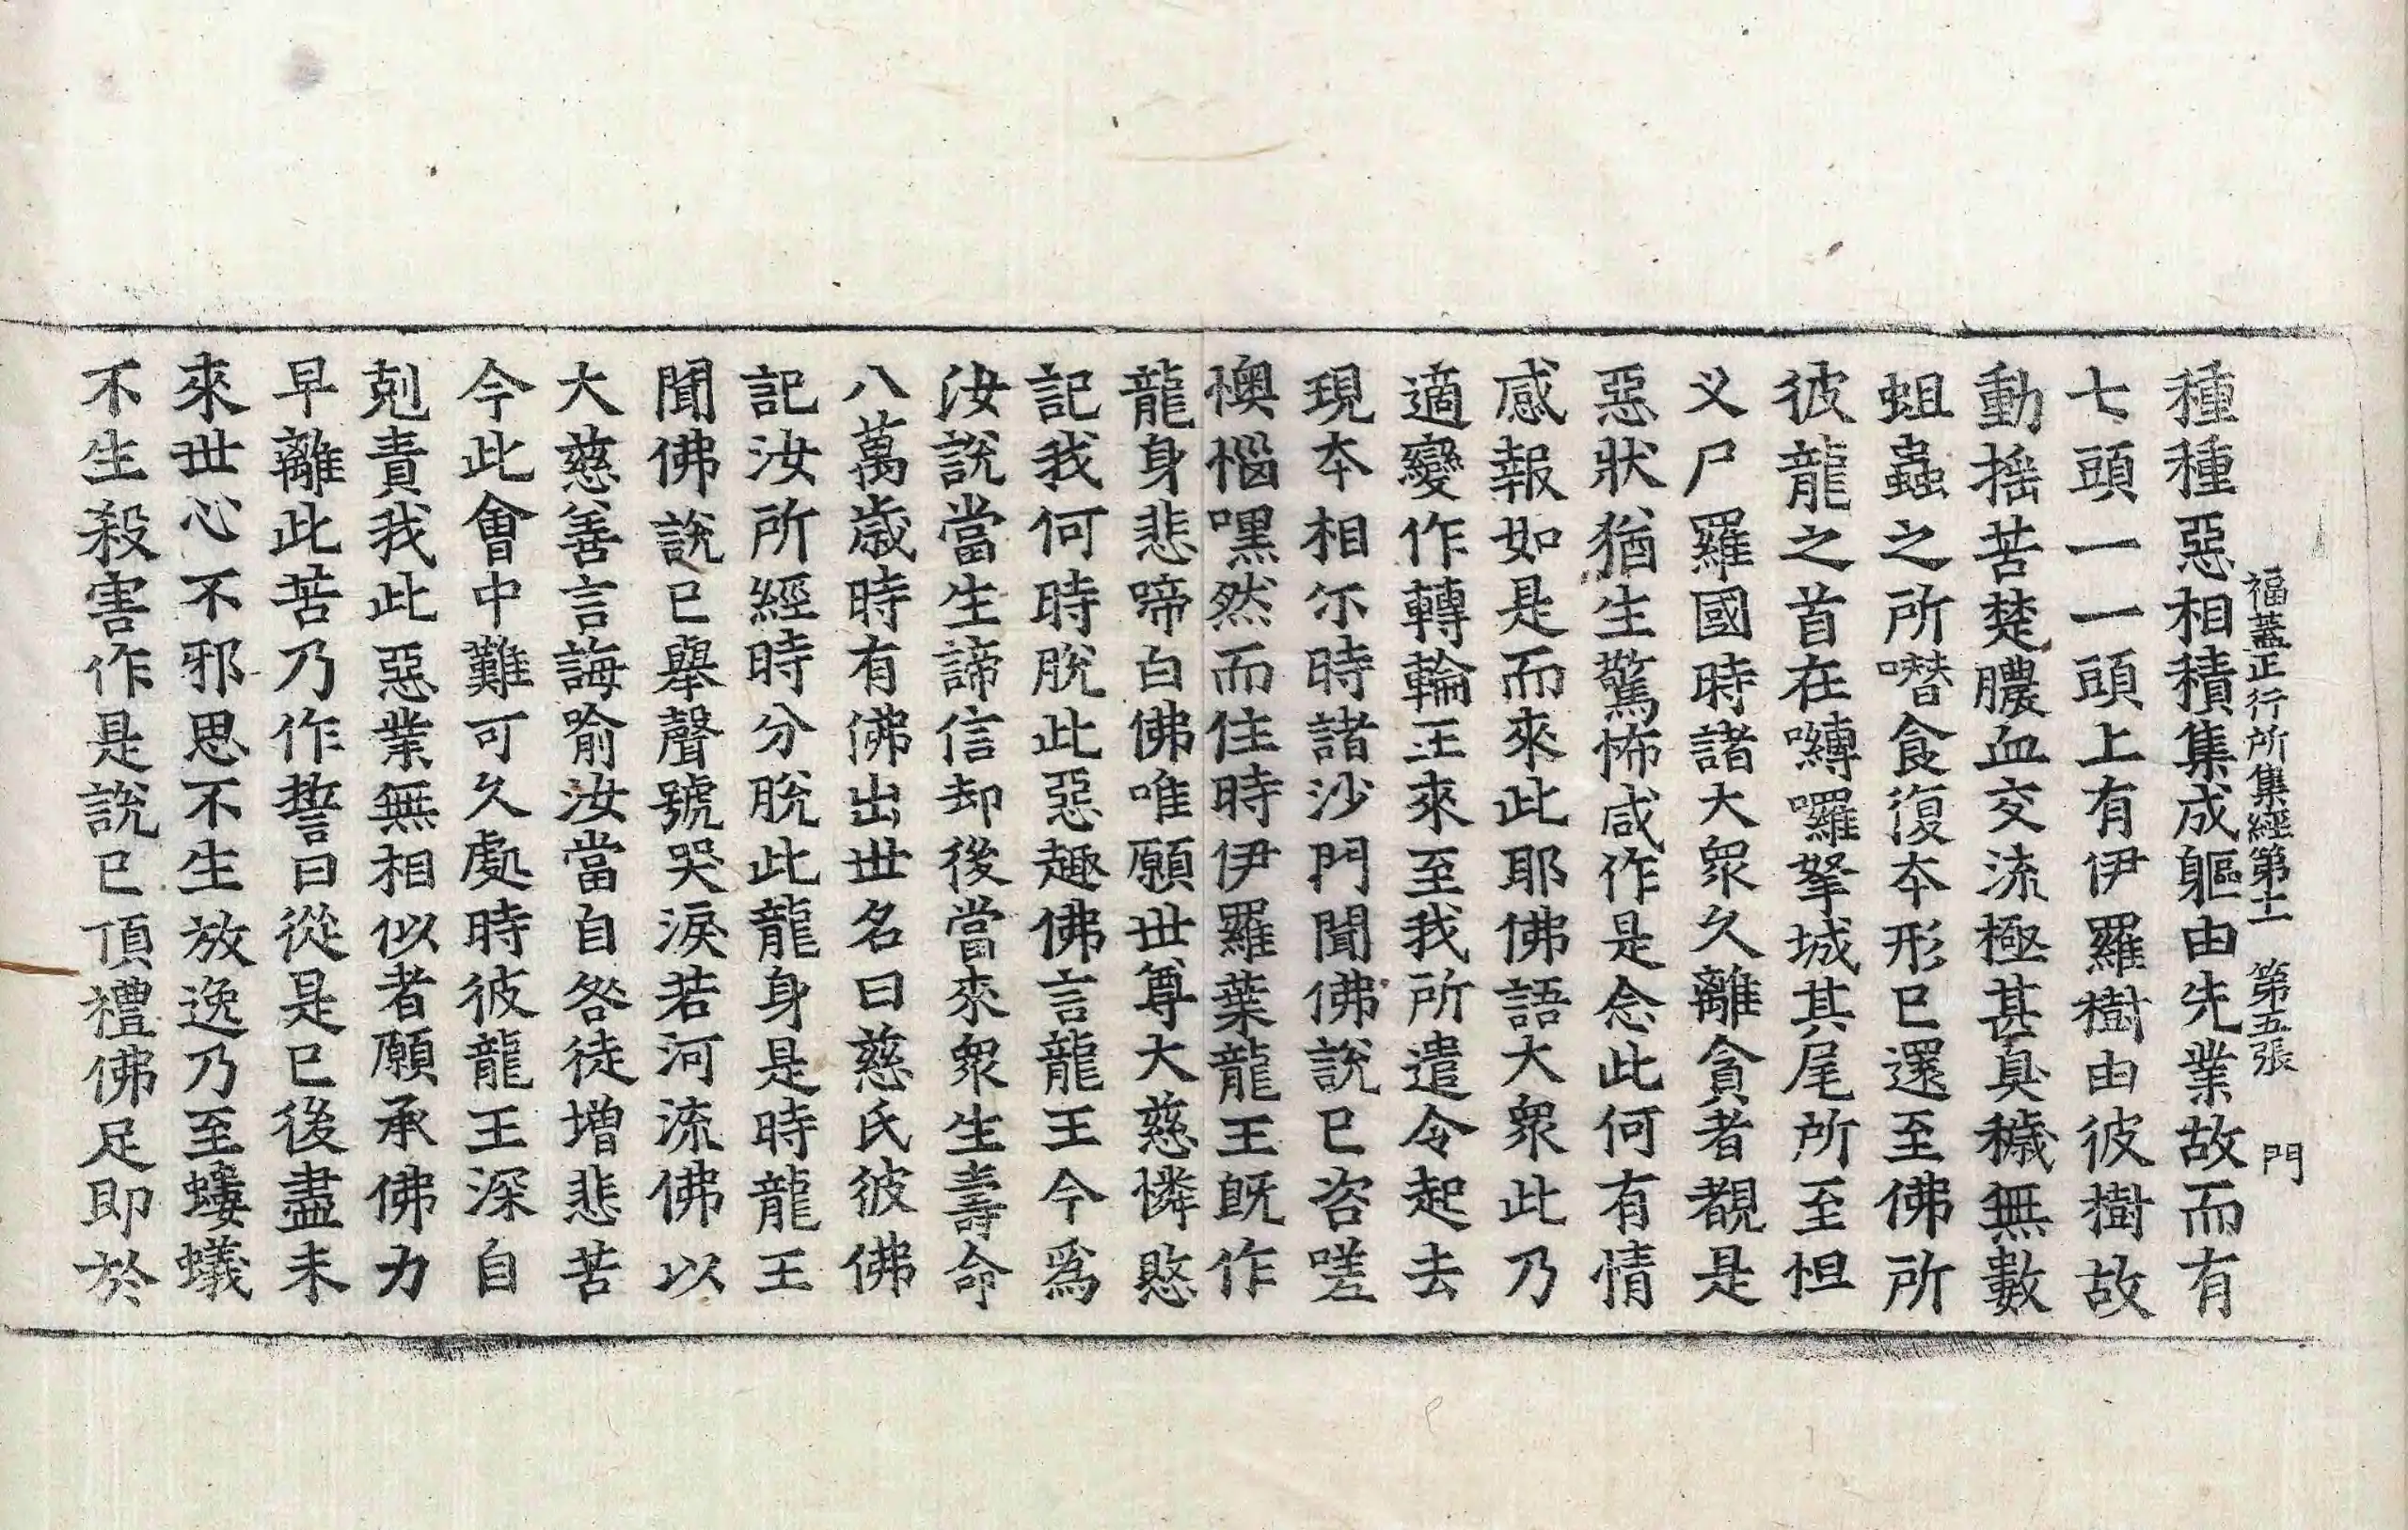 福蓋正行所集經第十一　第五張　門
種種惡相積集成軀由先業故而有
七頭一一頭上有伊羅樹由彼樹故
動搖苦楚膿血交流極甚臭穢無數
蛆蟲之所噆食復本形已還至佛所
彼龍之首在嚩囉拏城其尾所至怛
义尸羅國時諸大衆久離貪者覩是
惡狀猶生驚怖咸作是念此何有情
感報如是而來此耶佛語大衆此乃
適變作轉輪王來至我所遣令起去
現本相尒時諸沙門聞佛說已咨嗟
懊惱嘿然而住時伊羅葉龍王旣作
龍身悲啼白佛唯願世尊大慈憐愍
記我何時脫此惡趣佛言龍王今爲
汝說當生諦信却後當來衆生壽命
八萬歲時有佛出世名曰慈氏彼佛
記汝所經時分脫此龍身是時龍王
聞佛說已舉聲號哭淚若河流佛以
大慈善言誨喻汝當自咎徒增悲苦
今此會中難可久處時彼龍王深自
剋責我此惡業無相似者願承佛力
早離此苦乃作誓曰從是已後盡未
來世心不邪思不生放逸乃至螻蟻
不生殺害作是說已頂禮佛足即於